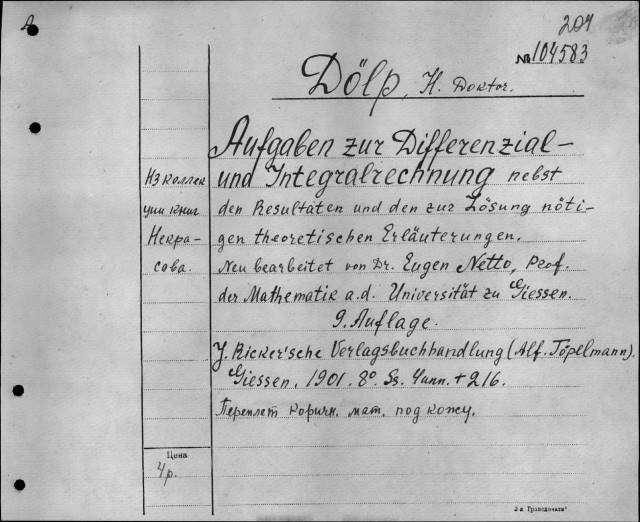 204
№ 104583
Dölp, H. Doktor.
Aufgaben zur Differenzial-
und Integralrechnung nebst
den Resultaten und den zur Lösung nöti-
gen theoretischen Erläuterungen.
Neu bearbeitet von Dr. Eugen Netto, Prof.
der Mathematik a.d. Universität zu Giessen.
9. Auflage.
J. Ricker'sche Verlagsbuchhandlung (Alf. Töpelmann).
Giessen, 1901. 8°. Ss. 4 unn. + 216.
Переплет коричн. мат. под кожу.
Из коллек
ции книг
Некра-
сова.
Цена
4 р.